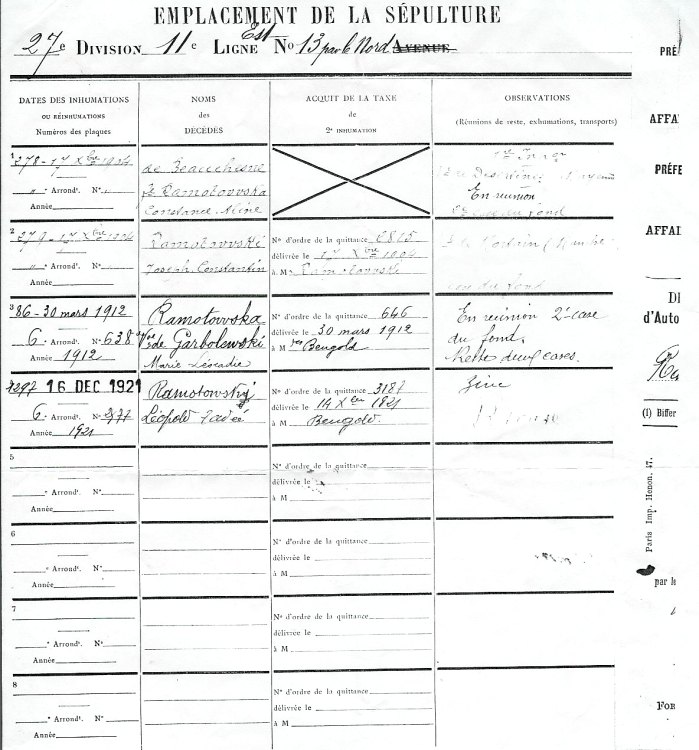 EMPLACEMENT DE LA SÉPULTURE
27e DIVISION 11e LIGNE Est No 13 par le Nord AVENUE
DATES DES INHUMATIONS
OU RÉINHUMATIONS
Numéros des plaques
NOMS
des
DÉCÉDÉS
ACQUIT DE LA TAXE
de
2e INHUMATION
OBSERVATIONS
(Réunions de reste, exhumations, transports)
1 278 - 17 Xbre 1904
" e Arrondt. No "
Année
de Beauchesne
Ramotowska
Constance
En réunion
du fond
2 279 - 17 Xbre 1904
" e Arrond. N°
Année
Ramotowski
Joseph Constantin
N° d'ordre de la quittance 6815
délivrée le 17 Xbre 1904
à M Ramotowski
du fond
3 86 - 30 mars 1912
6 e Arrondt. No 638
Année 1912
Ramotowska
Vve de Garbolewski
Marie Léocadie
N° d'ordre de la quittance 646
délivrée le 30 mars 1912
à M Bengold
En réunion 2e case
du fond.
Reste deux cases.
1297 16 DEC 1921
6 e Arrondt. No
Année 1921
Ramotowski
Léopold
N° d'ordre de la quittance 3187
délivrée le 14 Xbre 1921
à M Bengold
Zinc
5
e Arrondt. No
Année
N° d'ordre de la quittance
délivrée le
à M
6
e Arrondt. No
Année
N° d'ordre de la quittance
délivrée le
à M
7
e Arrondt. No
Année
N° d'ordre de la quittance
délivrée le
à M
8
e Arrondt. No
Année
N° d'ordre de la quittance
délivrée le
à M
PRÉ
AFFA
PRÉFE
AFFAI
DI
d'Auto
(1) Biffer
Paris Imp. Henon. 47.
par le
FOR